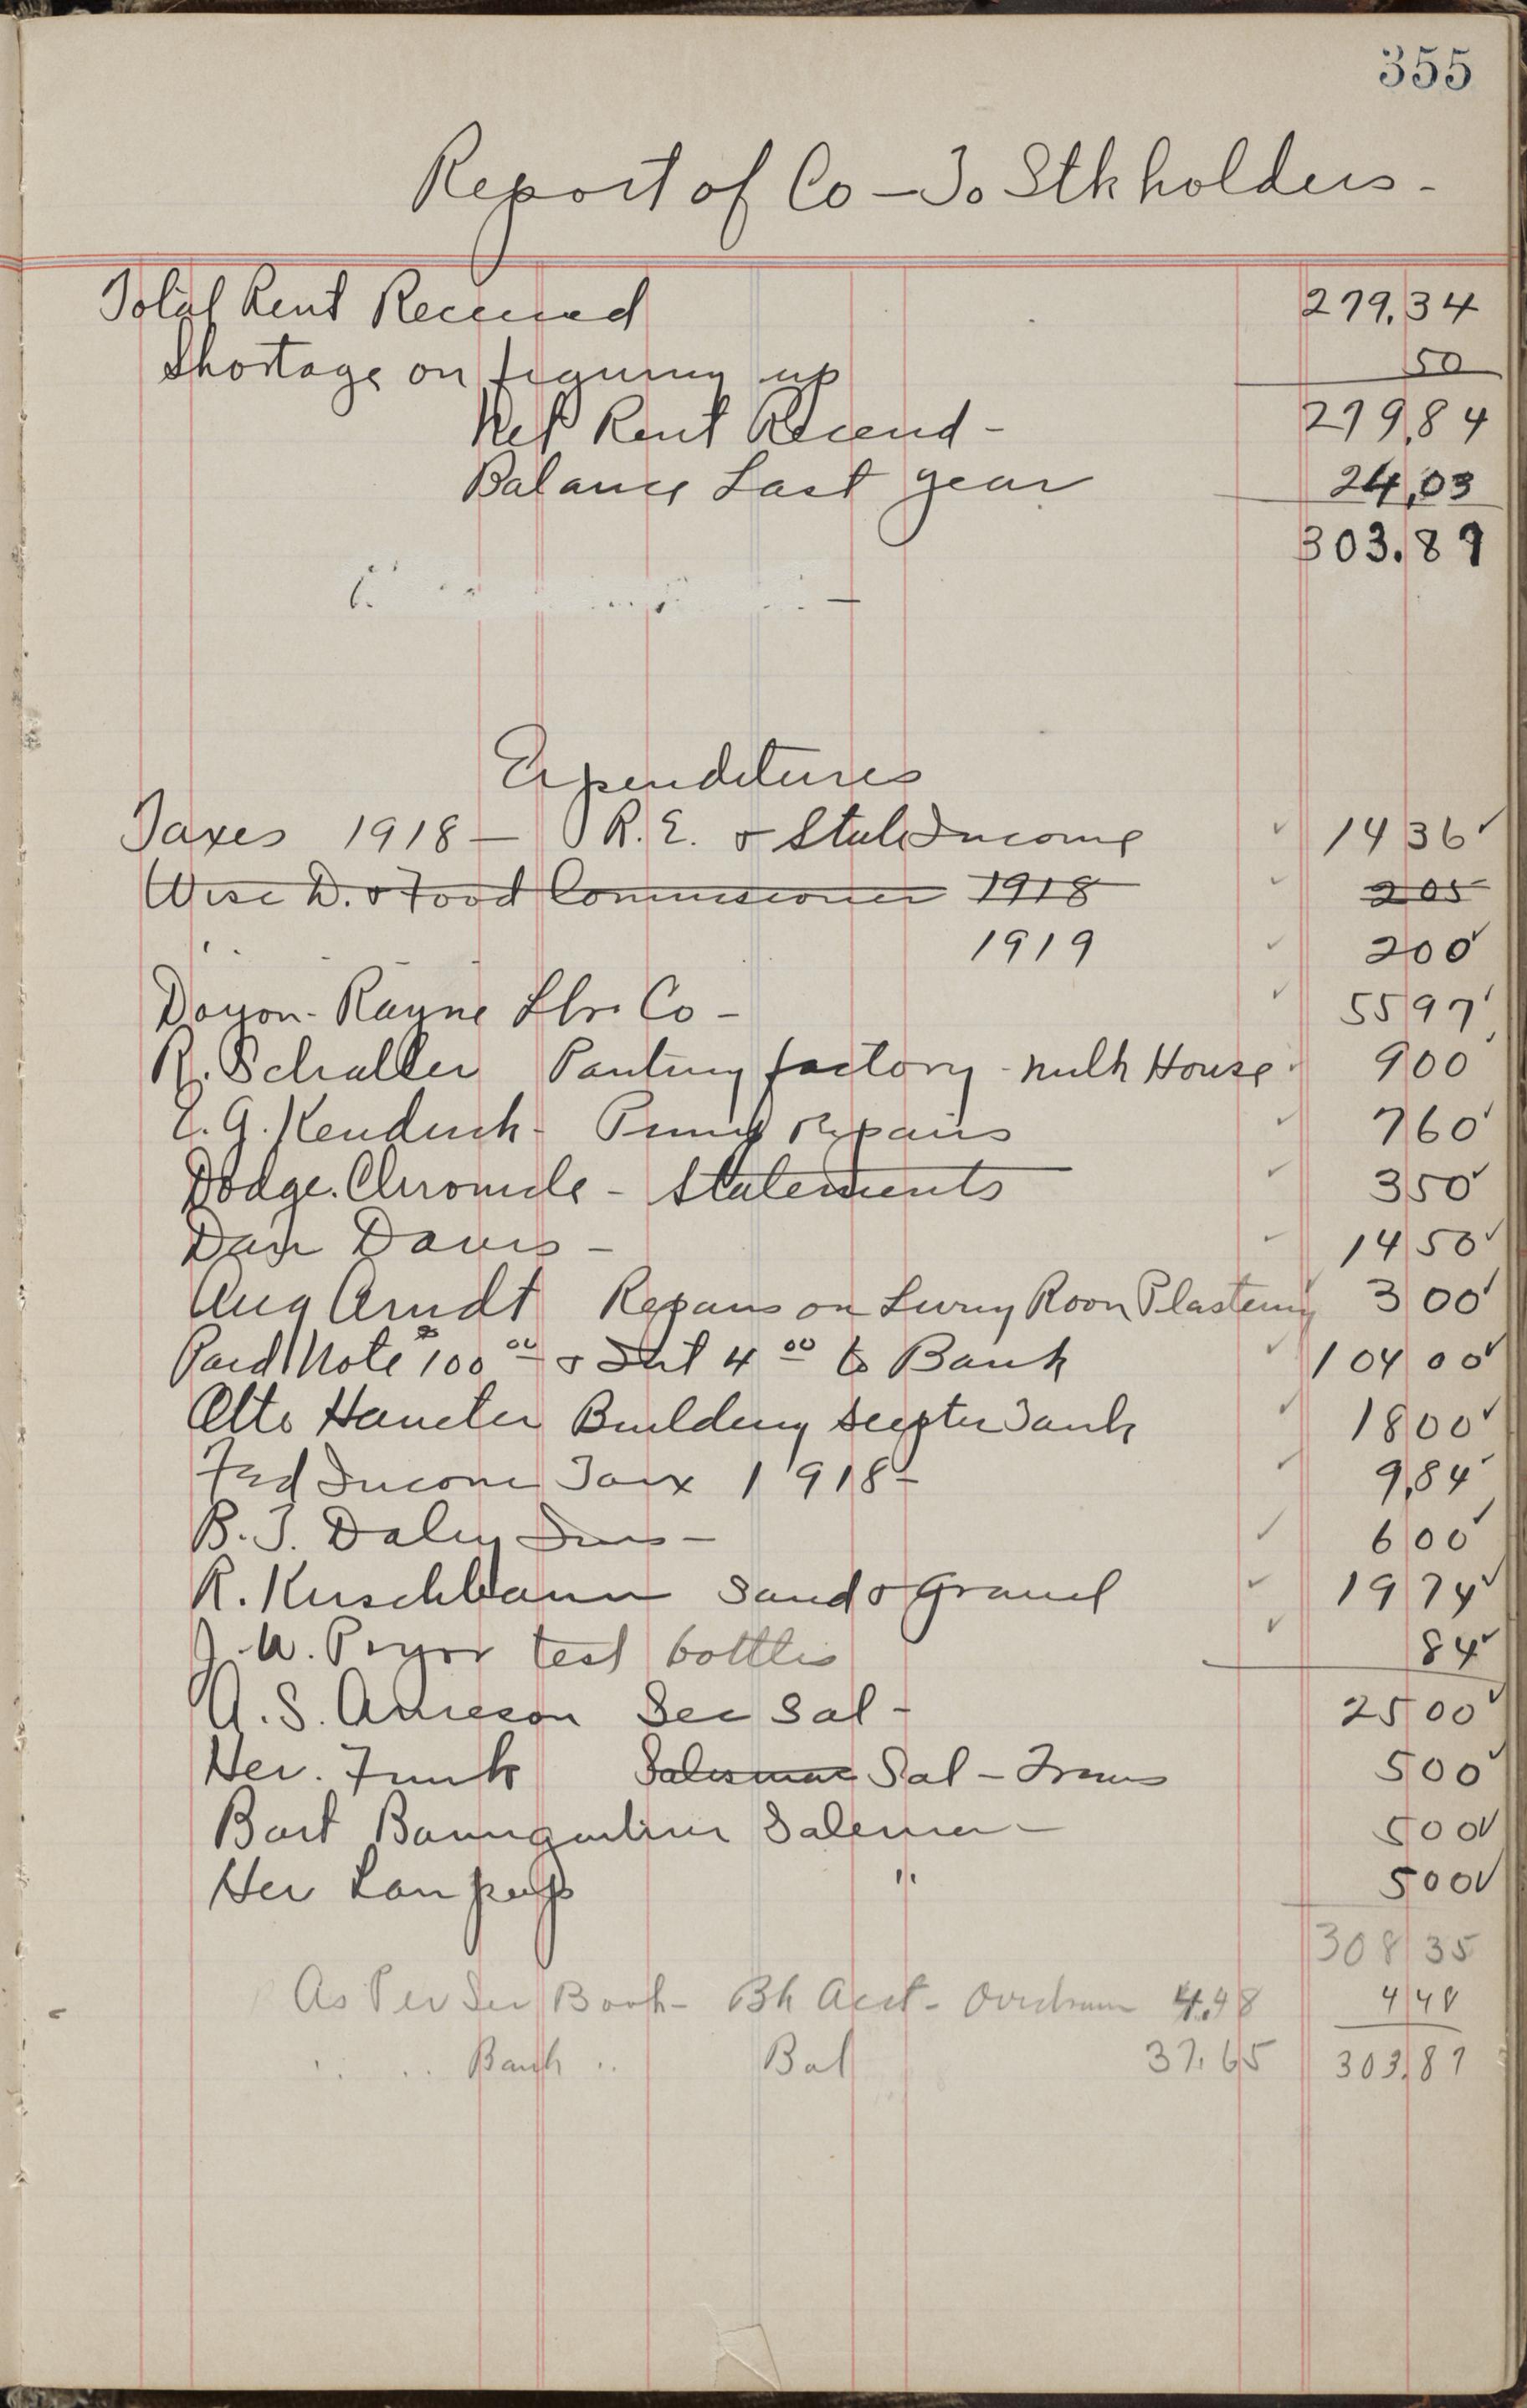 355
Report of Co - To Stkholders -
Total Rent Received 279.34
Shortage on figuring up 50
Net Rent Recend - 279.84
Balance Last year 24.03
303.87
Expenditures
Taxes 1918 - R.E. & State Income ✓ 14 36 ✓
Wisc D. & Food Commissioner 1918 ✓ 2 05
" " 1919 ✓ 2 00 ✓
Doyon-Rayne Lbr. Co - ✓ 55 97 ✓
R. Schaller Panting factory - milk House 9 00 ✓
E. G. Kendrick - Pump Repairs ✓ 7 60 ✓
Dodge. Chronicle - Statements ✓ 3 50 ✓
Dan Davis - ✓ 14 50 ✓
Aug Arndt Repairs on Living Room Plastering 3 00 ✓
Paid Note $100 00 & Int 4 00 to Bank ✓ 104 00 ✓
Otto Building Septic Tank ✓ 18 00 ✓
Fed Income Tax 1918 - ✓ 9.84 ✓
B. T. Daley Ins - ✓ 6 00 ✓
R. Kirschbaum Sand & Gravel ✓ 19 74 ✓
J. W. Pryor test bottles ✓ 84 ✓
A. S. Sec Sal - 25 00 ✓
Her. Funk Salesman Sal - Treas 5 00 ✓
Bart Baumgartner Saleman - 5 00 ✓
Her Lampop " 5 00 ✓
308 35
As Per Sec Book - Bk Acct - Overdrawn 4.48 4 48
" " Bank " Bal 37.65 303.87